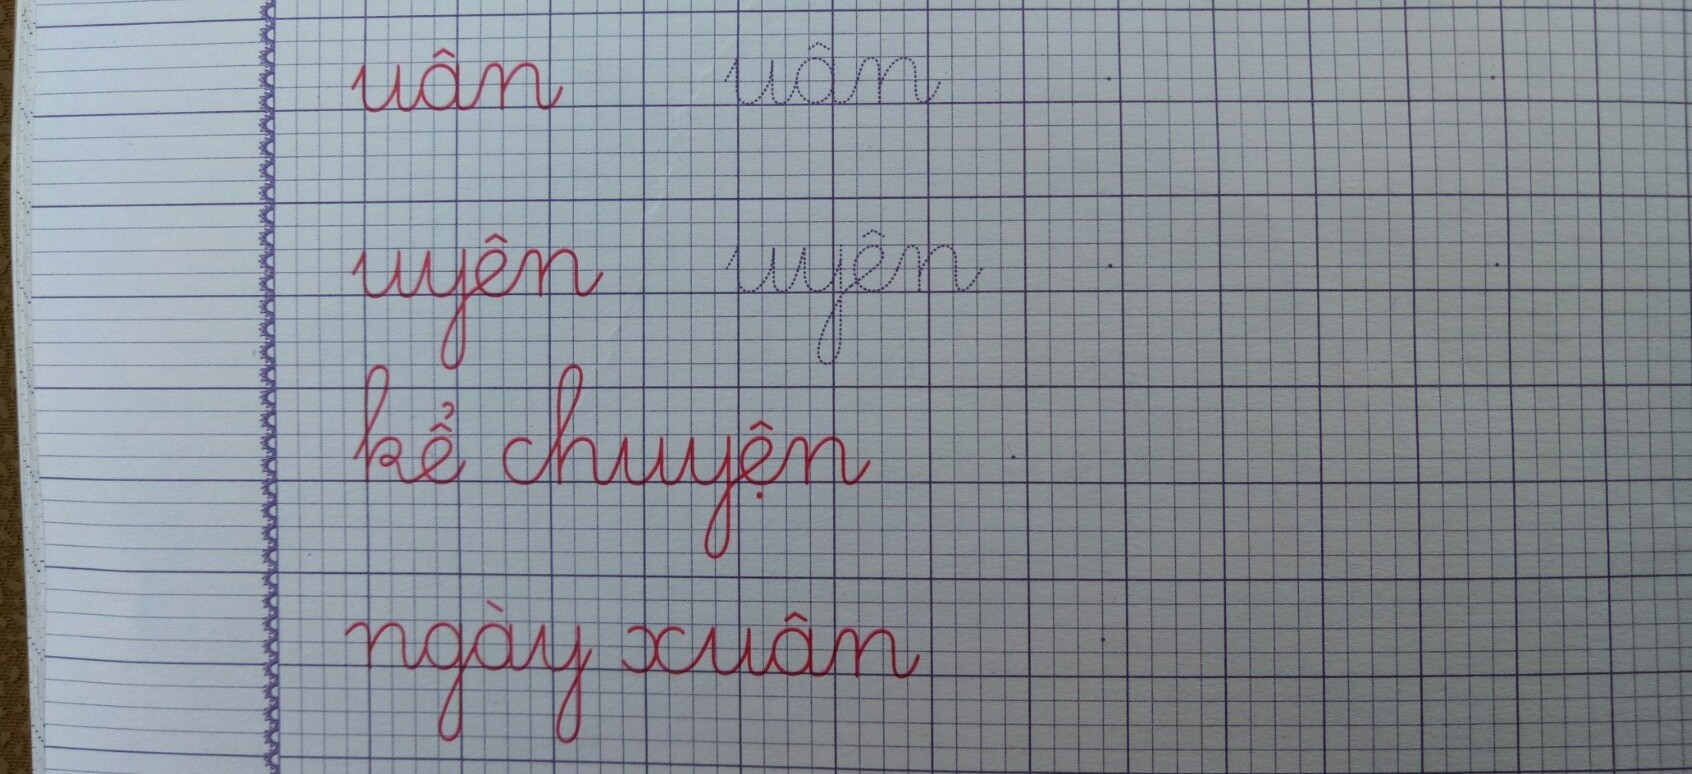 uân uân
uyên uyên
kể chuyện
ngày xuân